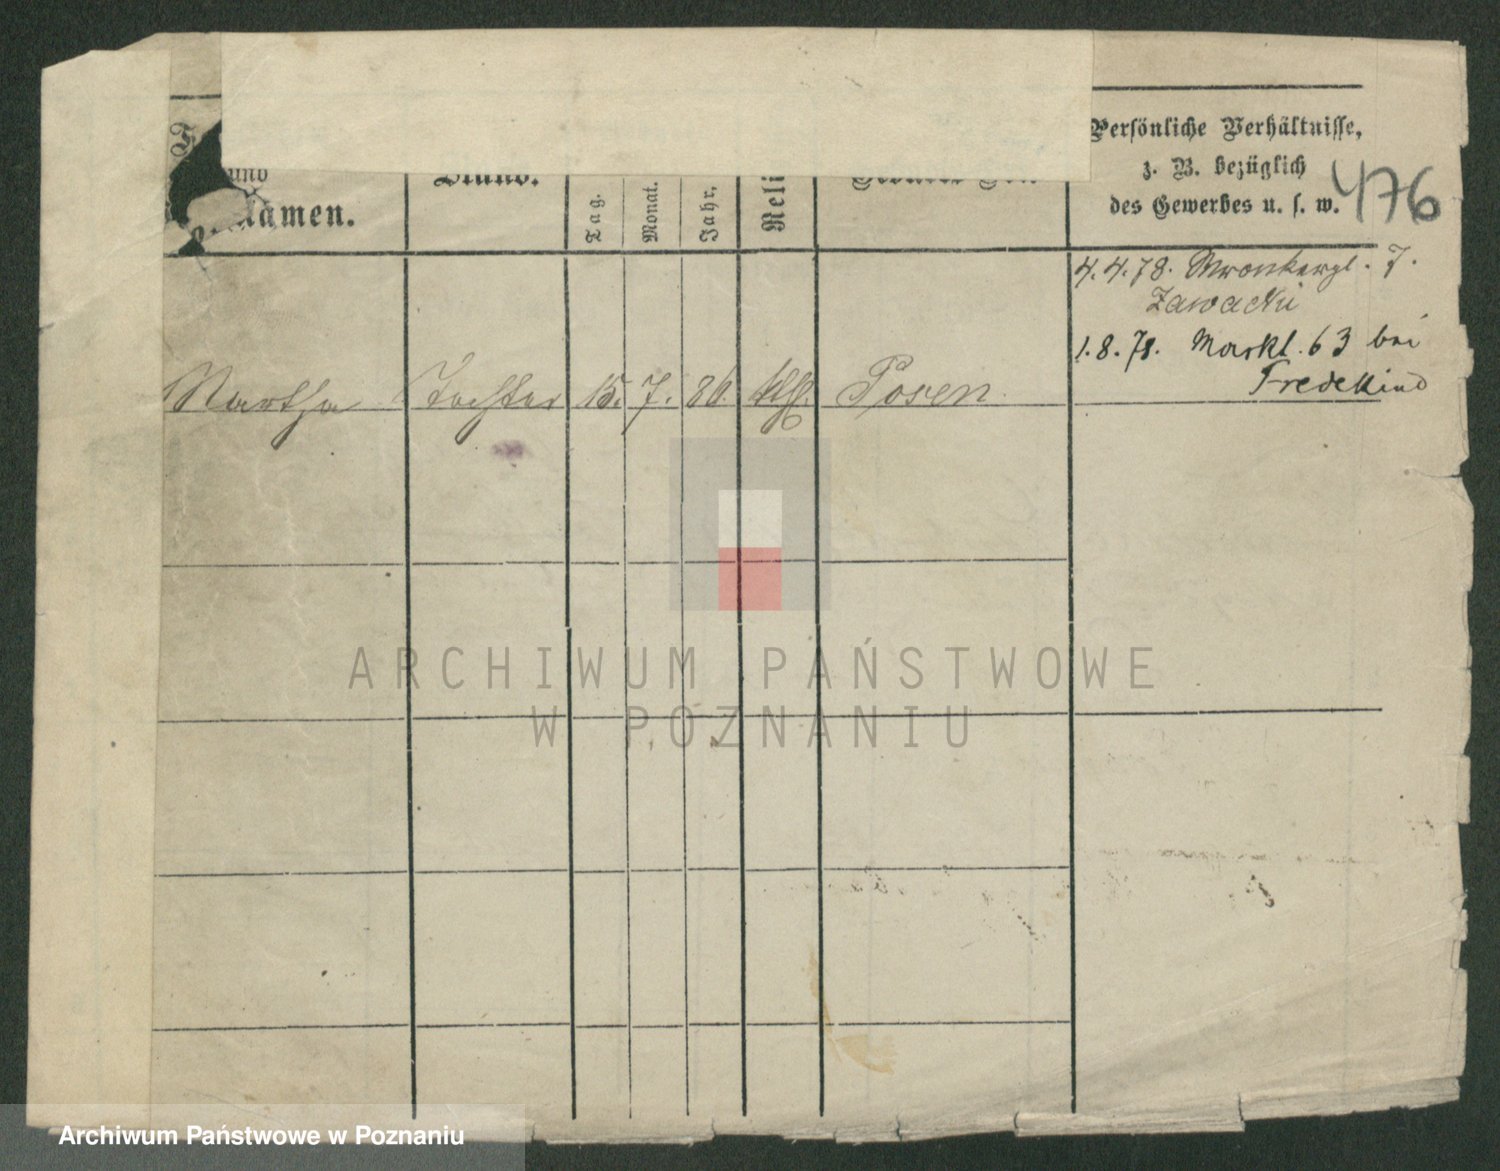 und
Namen.
Stand.
Tag.
Monat.
Jahr.
Reli
Persönliche Verhältnisse,
z. B. bezüglich
des Gewerbes u. s. w.
476
4.4.78. Wronkerpl. 7.
Zawacki
1.8.78. Markt. 63 bei
Fredekind
Martha Tochter 15. 7. 86. Posen
ARCHIWUM PAŃSTWOWE
W POZNANIU
Archiwum Państwowe w Poznaniu